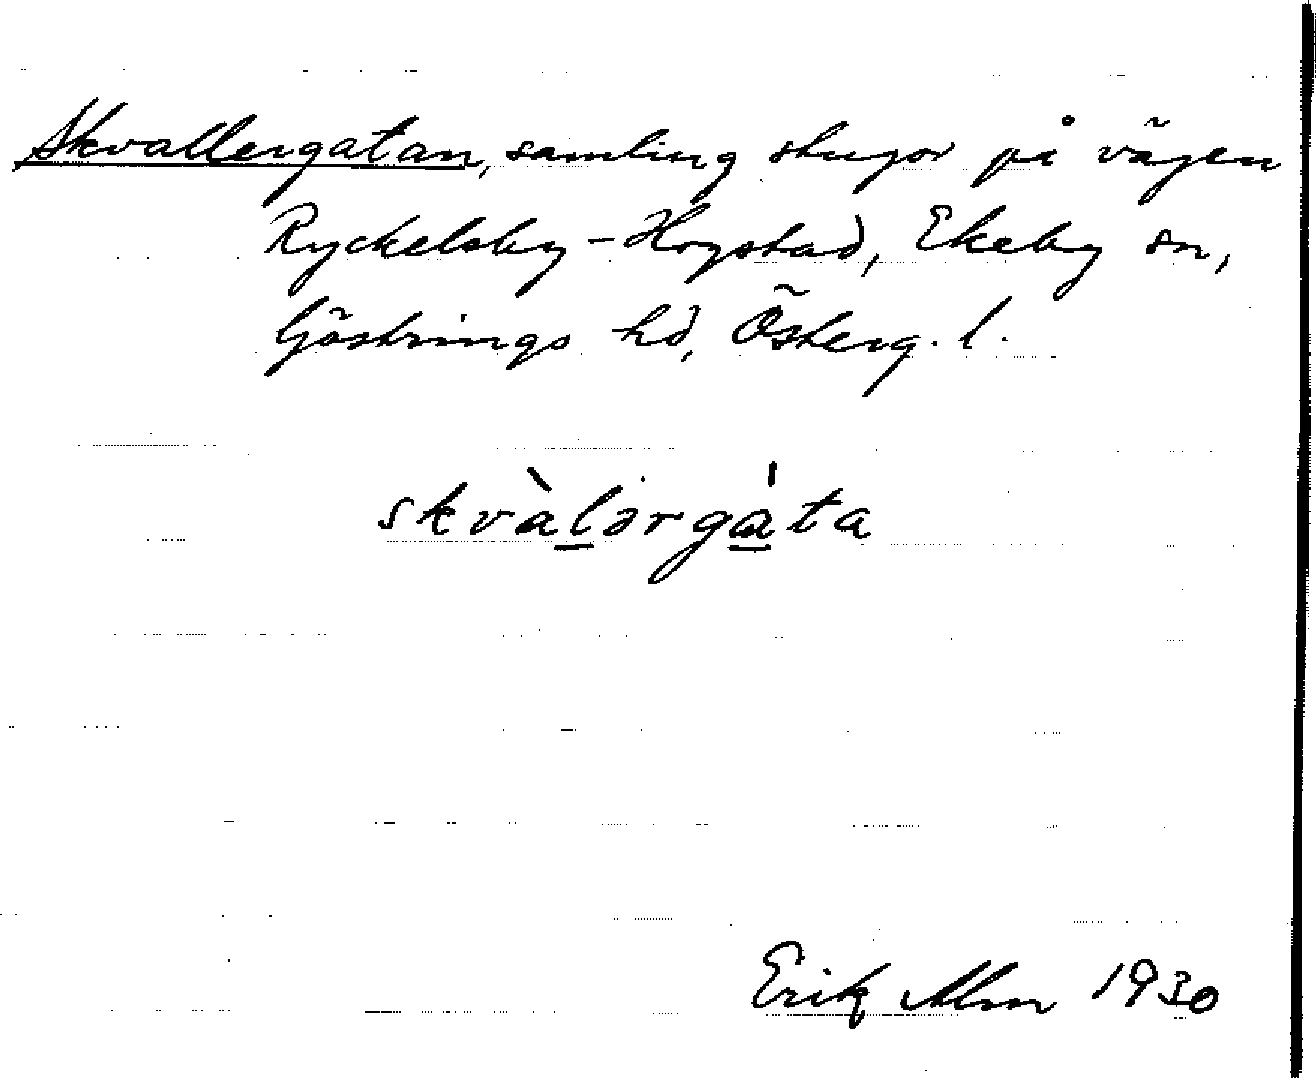 Skvallergatan, samling stugor på vägen
Ryckelsby-Hogstad, Ekeby sn,
Göstrings hd, Österg. l.
skvàl̲ərga̲̍ta
Erik Alm 1930